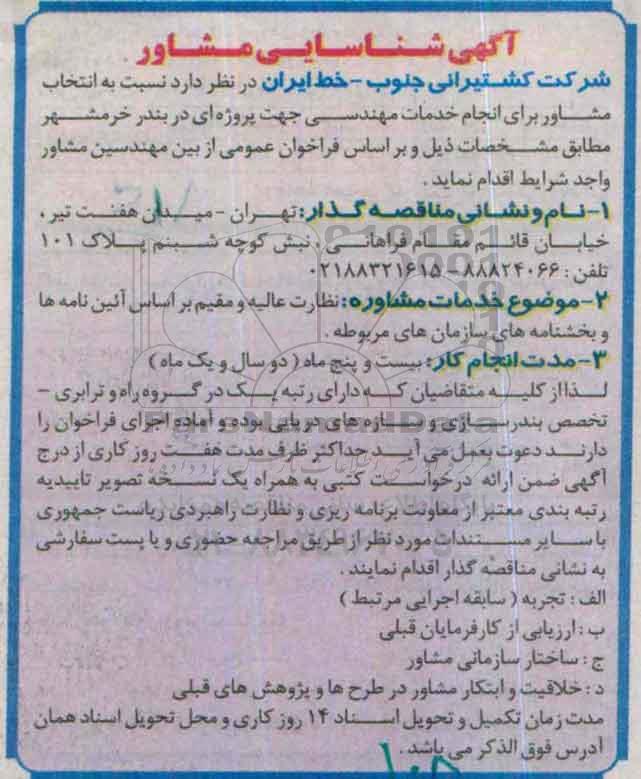 آگهی شناسایی مشاور
شرکت کشتیرانی جنوب - خط ایران در نظر دارد نسبت به انتخاب
مشاور برای انجام خدمات مهندسی جهت پروژه ای در بندر خرمشهر
مطابق مشخصات ذیل و بر اساس فراخوان عمومی از بین مهندسین مشاور
واجد شرایط اقدام نماید .
۱- نام و نشانی مناقصه گذار: تهران - میدان هفت تیر ،
خیابان قائم مقام فراهانی ، نبش کوچه شبنم پلاک ۱۰۱
تلفن : ۸۸۸۲۴۰۶۶ - ۰۲۱۸۸۳۲۱۶۱۵
۲- موضوع خدمات مشاوره: نظارت عالیه و مقیم بر اساس آئین نامه ها
و بخشنامه های سازمان های مربوطه .
۳- مدت انجام کار: بیست و پنج ماه ( دو سال و یک ماه )
لذا از کلیه متقاضیان که دارای رتبه یک در گروه راه و ترابری -
تخصص بندرسازی و سازه های دریایی بوده و آماده اجرای فراخوان را
دارند دعوت بعمل می آید حداکثر ظرف مدت هفت روز کاری از درج
آگهی ضمن ارائه درخواست کتبی به همراه یک نسخه تصویر تاییدیه
رتبه بندی معتبر از معاونت برنامه ریزی و نظارت راهبردی ریاست جمهوری
با سایر مستندات مورد نظر از طریق مراجعه حضوری و یا پست سفارشی
به نشانی مناقصه گذار اقدام نمایند .
الف : تجربه ( سابقه اجرایی مرتبط )
ب : ارزیابی از کارفرمایان قبلی
ج : ساختار سازمانی مشاور
د : خلاقیت و ابتکار مشاور در طرح ها و پژوهش های قبلی
مدت زمان تکمیل و تحویل اسناد ۱۴ روز کاری و محل تحویل اسناد همان
آدرس فوق الذکر می باشد .